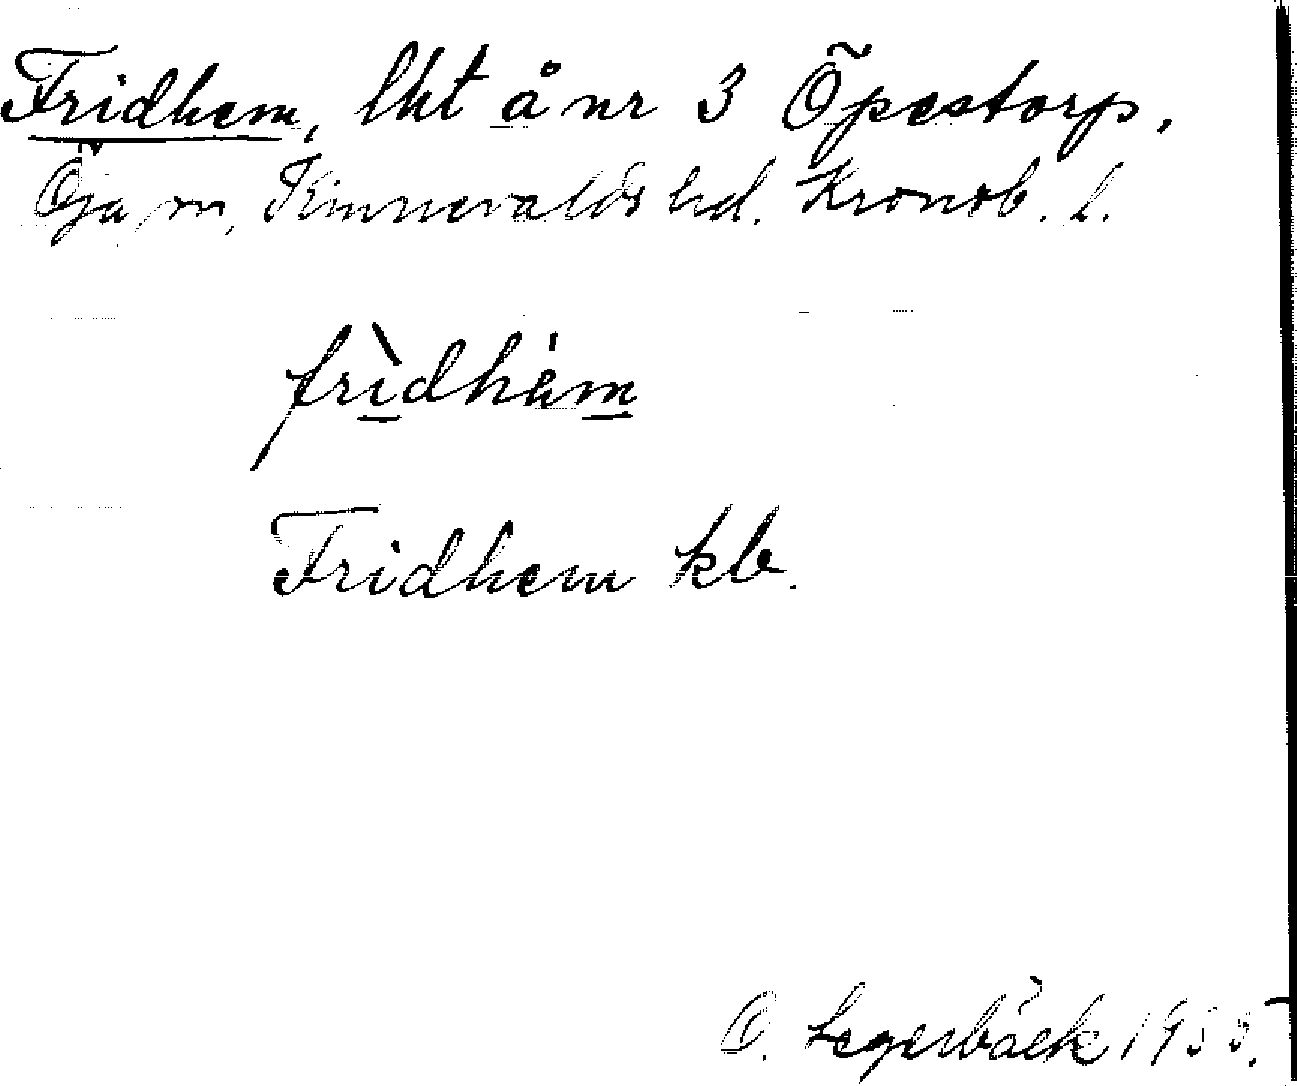 Fridhem, lht å nr 3 Öpestorp,
Öja sn, Kinnevalds hd. Kronob. l.
fri̱dhèm̱
Fridhem kb.
O. Segerbäck 1935.